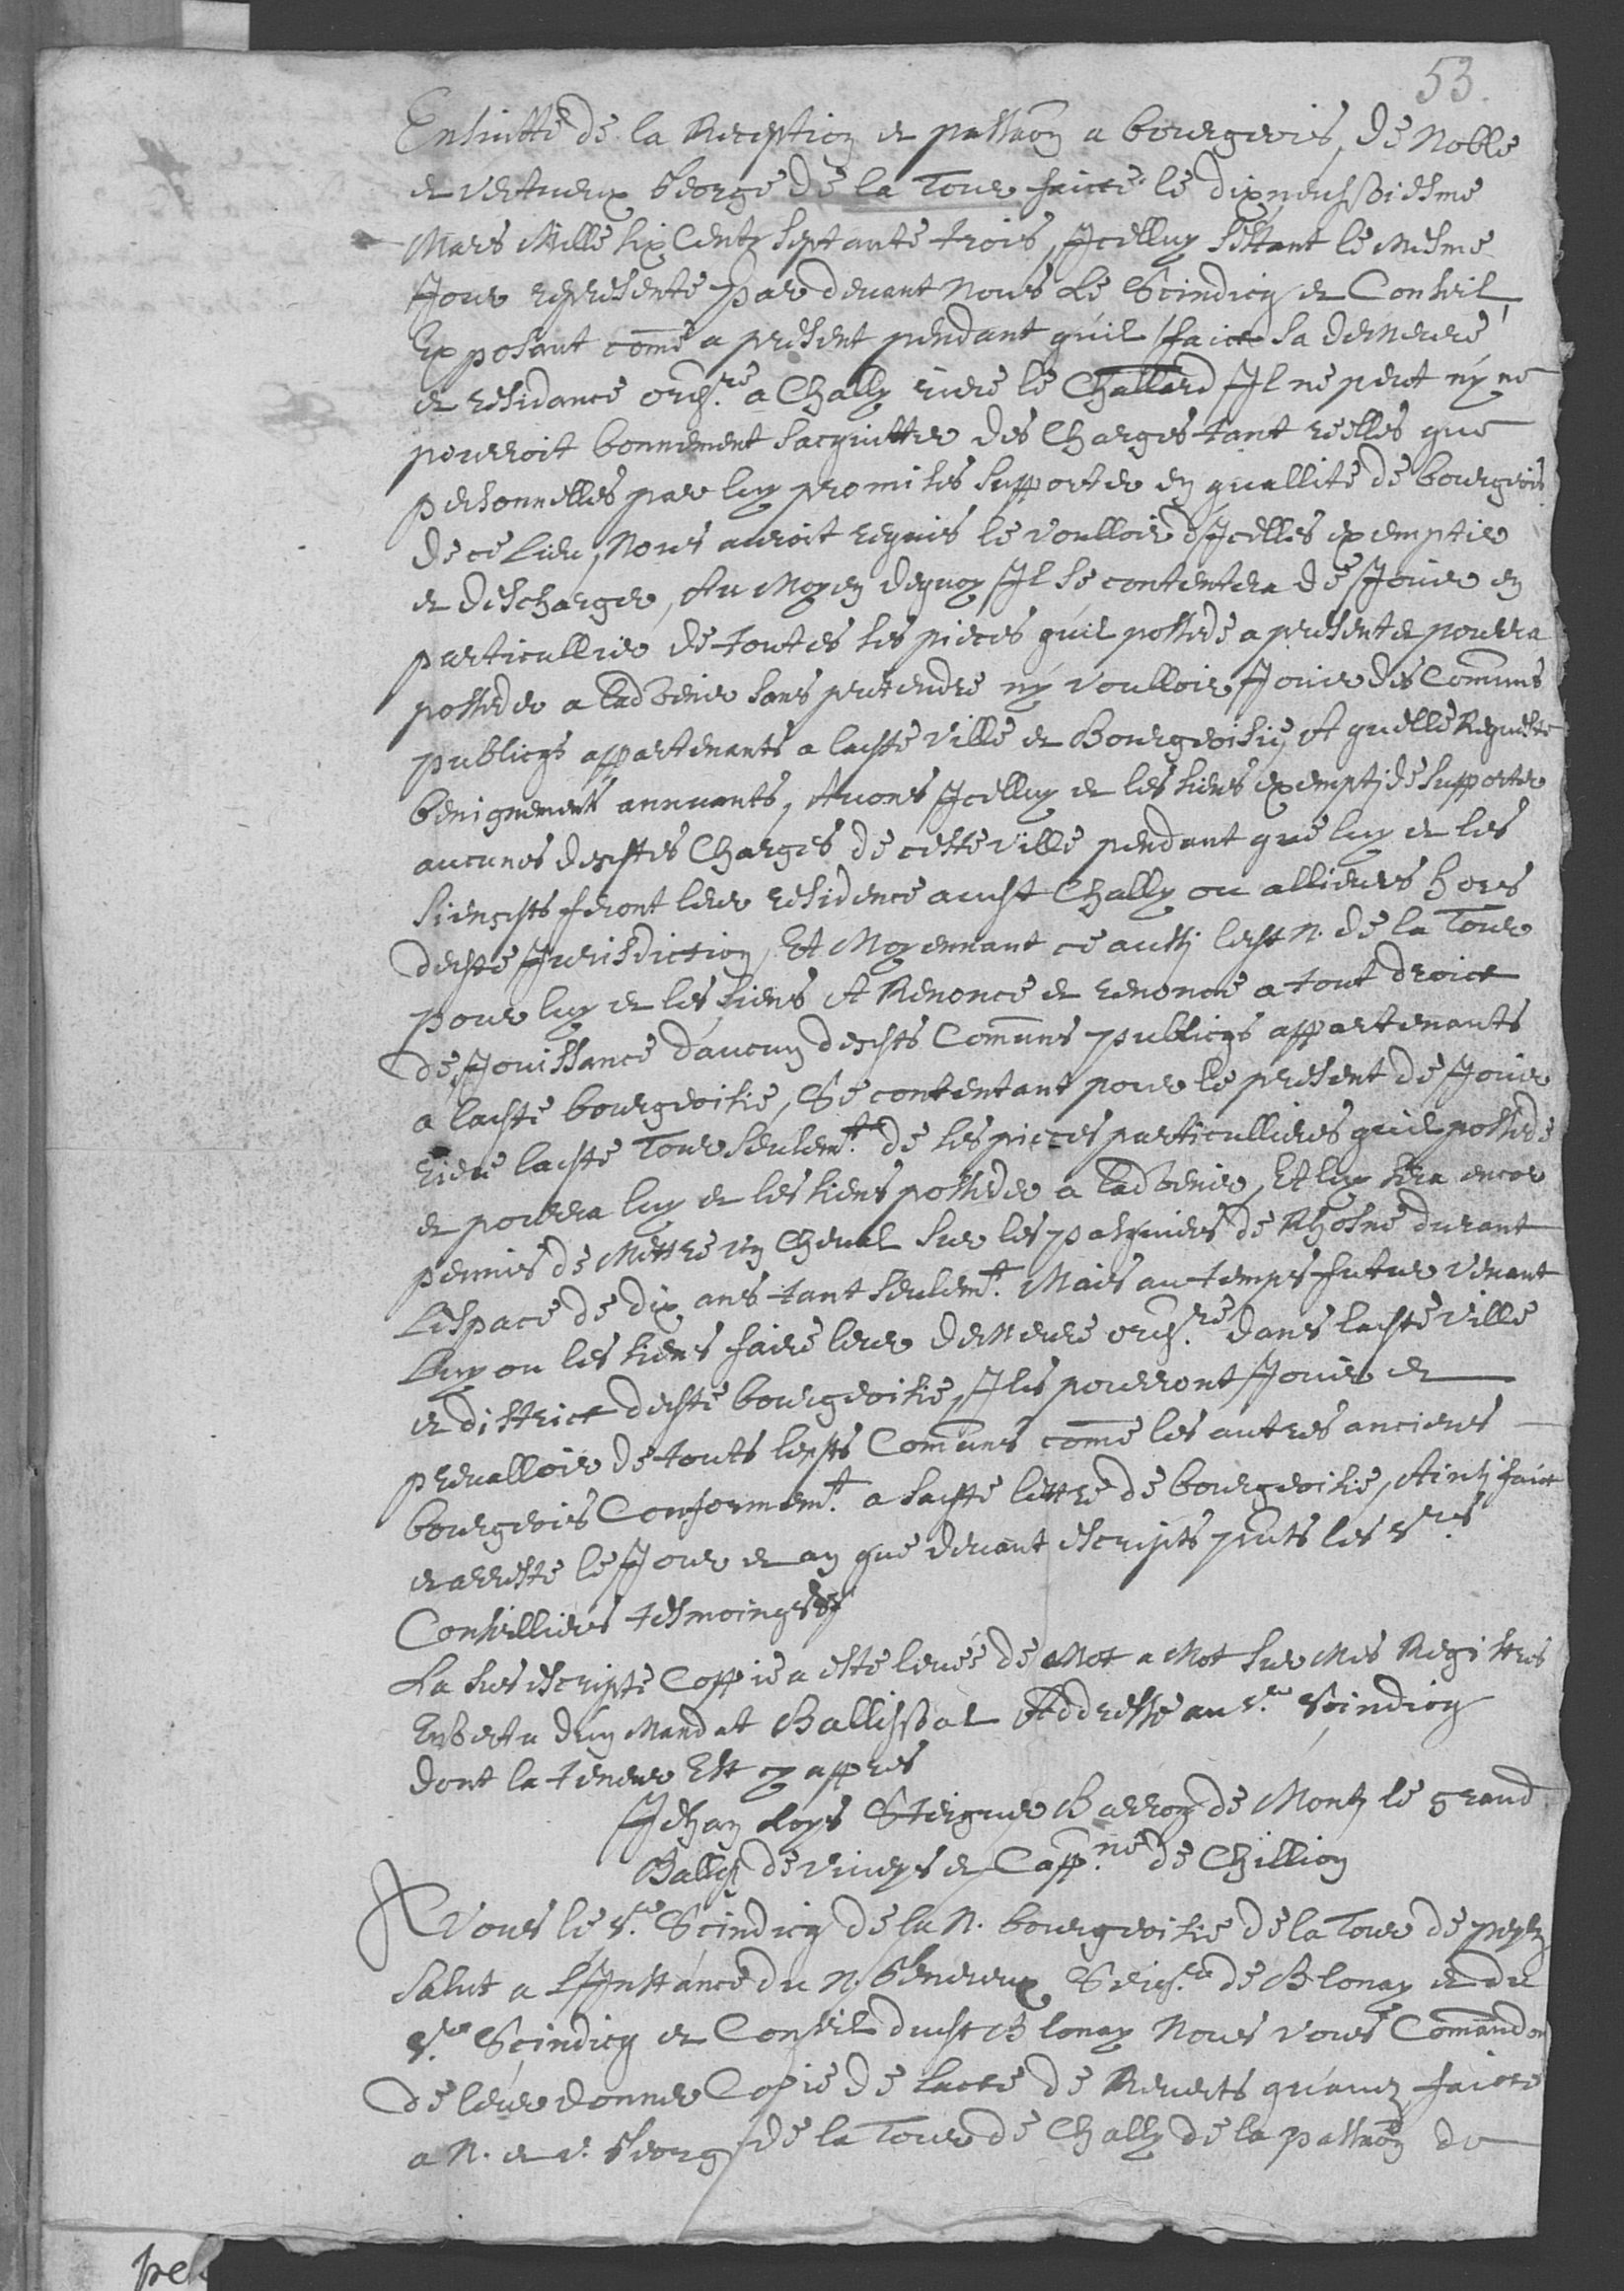 53.
Ensuitte de la Reception et passaõn a bourgeois, de Noble
et vertueux George de la Tour faicte le dixneufvoiesme
Mars Mille six Centz septante trois, Jcelluy sestant le mesme
Jour represente par devant Nous Le Scindicq et Conseil
Exposant comẽ a present pendant quil faict sa demeure
et residance ord.re a Chally riere le Challard Jl ne peut ny ne
pourroit bonnement sacquitter des Charges tant reelles que
personnelles par luy promises supporter en quallite de bourgeois
de ce Lieu, Nous auroit requis le voulloir dJcelles exemptir
et descharger, Au Moyen dequoy Jl se contentera de Jouir en
particullier de toutes ses pieces quil possede a present et pourra
posseder a ladvenir sans pretendre ny voulloir Jouir des Comuns
publicqs appartenants a ladte ville et Bourgeoisie, A quelle Requeste
benignement annuants, Avons Jcelluy et les siens exemptj de supporter
aucunes desdtes Charges de ceste ville pendant que luy et les
siensdts feront leur residence audt Chally ou allieurs hors
dedte Jurisdiction, Et Moyennant ce aussj ledt N. de la Tour
pour luy et les siens A Renonce et renonce a tout droict
de Jouissance d'aucun desdts Comuns publicqs appartenants
a ladte bourgeoisie, Se contentant pour le present de Jouir
riere ladte Tour seulem.t de ses pieces particullieres quil possede
et pourra luy et les siens posseder a ladvenir, Et luy sera encor
permis de Mettre un Cheval sur les pasquiers de Rhosne durant
Lespace de dix ans tant seulem.t Mais au temps futur venant
Luy ou les siens faire leur demeure ord.re dans ladte ville
et district dedte bourgeoisie, Jls pourront Jouir et
prevalloir de touts lesdts Comuns comẽ les autres anciens
bourgeois Conformem.t a sadte lettre de bourgeoisie, Ainsj faict
et arreste le Jour et an que devant escripts pnts les Srs
Conseilliers tesmoings
La susescripte Coppie a este levée de Mot a Mot sur Mes Registres
En vertu dun Mandat Ballifval Addresse au Sr. Scindicq
dont la teneur Est cy appres
Jehan Loys Steiguer Barron de Montz le grand
Ballif de Viveys et Capp.ne de Chillion
A Vous le Sr. Scindicq de la N. bourgeoisie de la Tour de peylz
salut a LJnstance du N. Genereux Seigr. de Blonay et du
Sr. Scindicq et Conseil dudt Blonay Nous vous Comandon
de leur donner Copie de lacte de Reverts quavez faicte
a N. et v. George de la Tour de Chally de la passaõn de